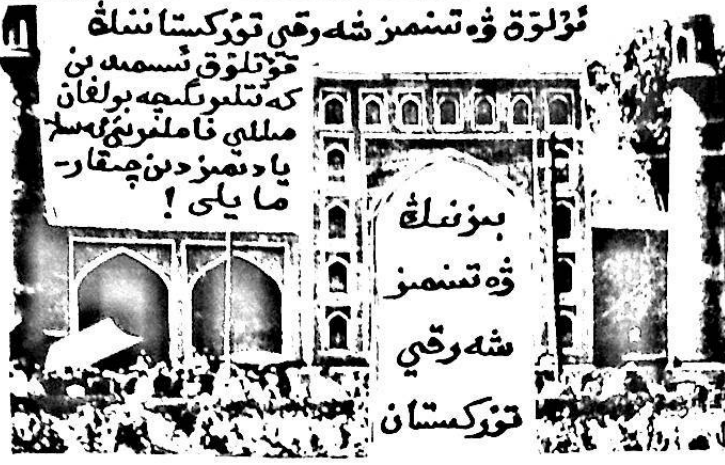 ئۇلۇق ۋەتىنىمىز شەرقىي تۈركىستاننىڭ
قۇتلۇق ئىسمىدىن
كەتتىلىرىگىچە بولغان
مىللىي
يادىمىزدىن چىقار-
مايلى!
بىزنىڭ
ۋەتىنىمىز
شەرقىي
تۈركىستان